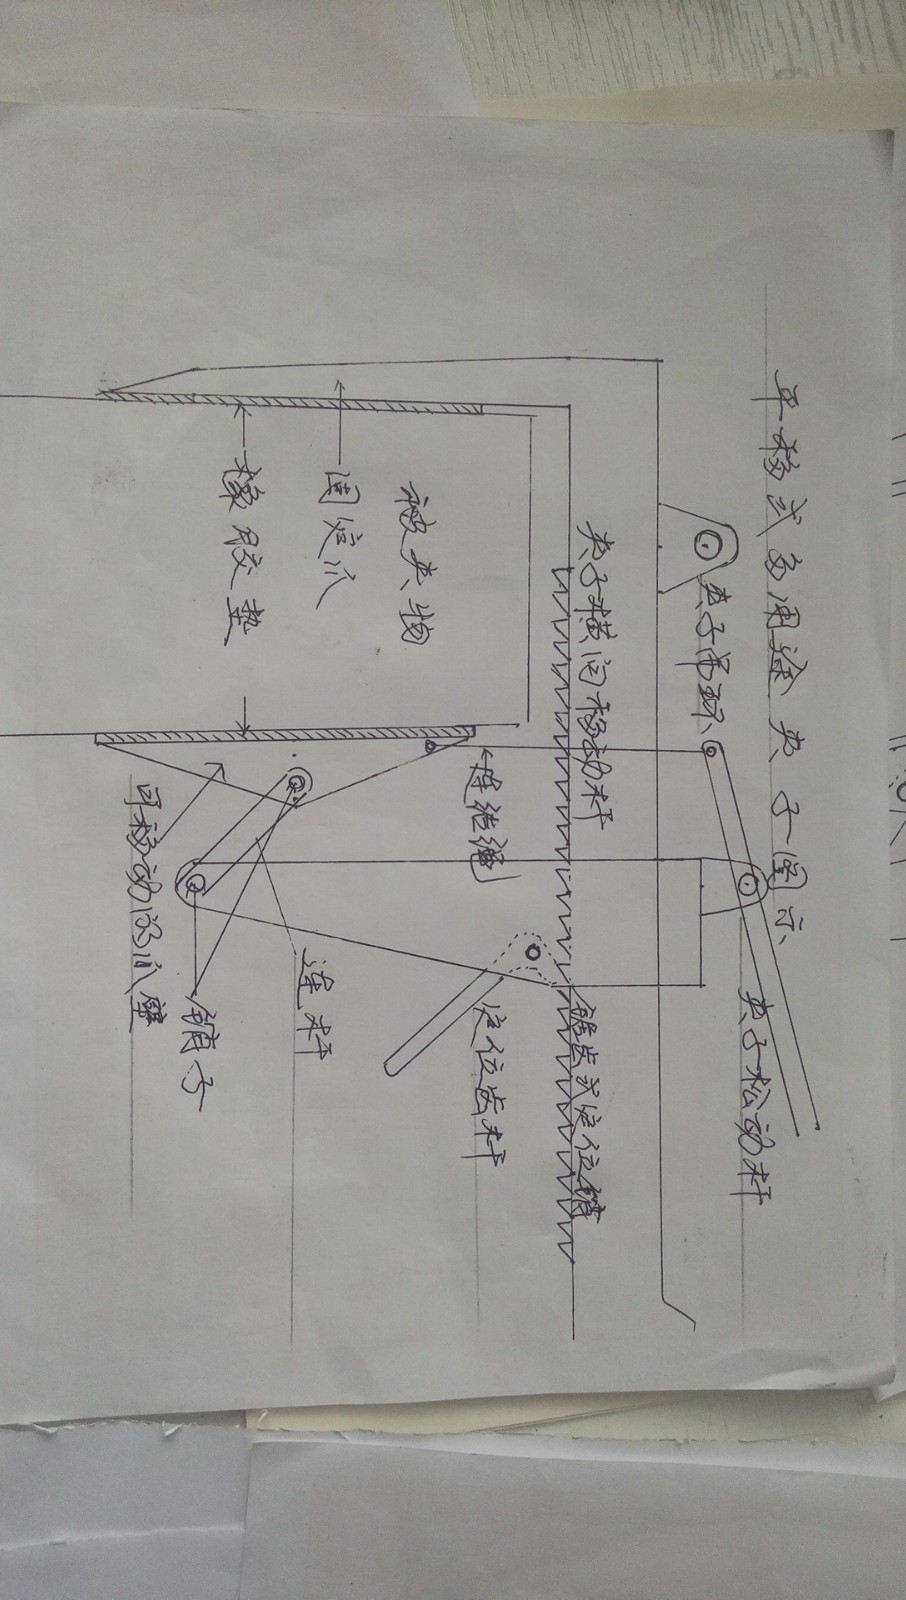 平移式多用途夹子图示
夹子吊环
夹子松动杆
夹子横向移动杆
锯齿式定位销
被夹物
连结绳
定位齿杆
固定爪
连杆
橡胶垫
销子
可移动的爪壁